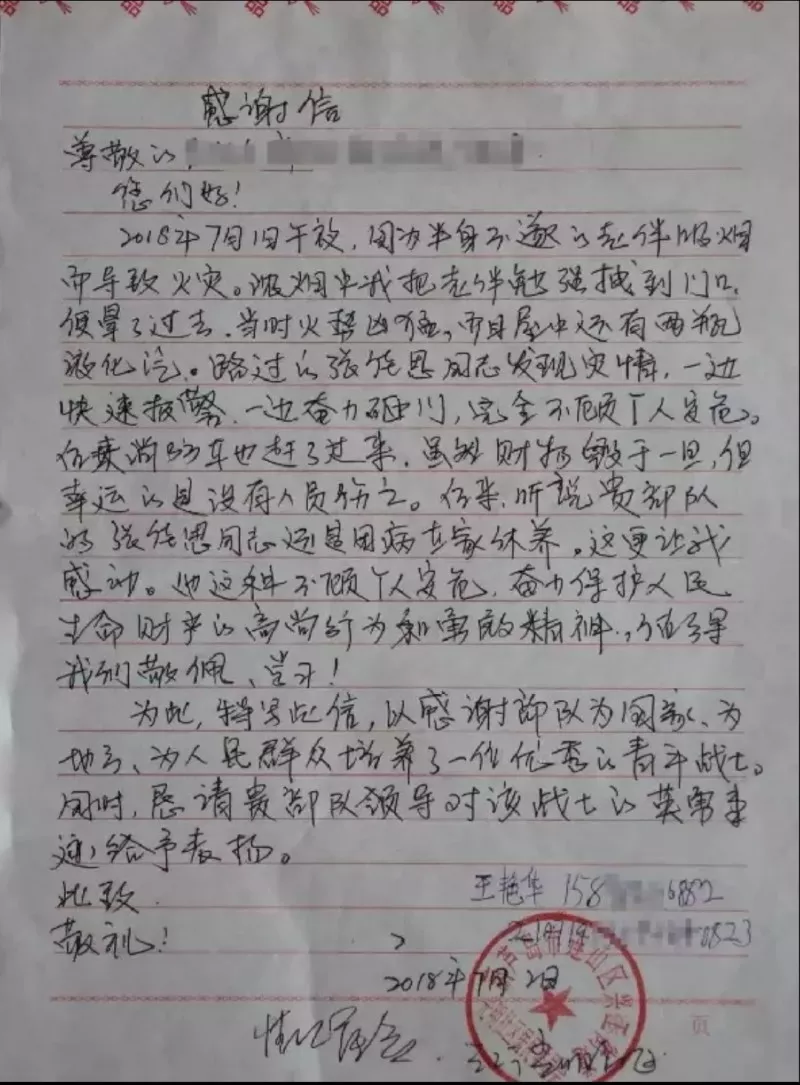 感谢信
尊敬的
您们好！
2018年7月1日午夜，因为半身不遂的老伴吸烟
而导致火灾。浓烟中我把老伴勉强拽到门口，
便晕了过去。当时火势凶猛，而且屋中还有两瓶
液化汽。路过的张能恩同志发现灾情，一边
快速报警，一边奋力砸门，完全不顾个人安危。
后来消防车也赶了过来，虽然财物毁于一旦，但
幸运的是没有人员伤亡。后来，听说贵部队
的张能恩同志还是因病在家休养。这更让我
感动。他这种不顾个人安危，奋力保护人民
生命财产的高尚行为和勇敢精神，值得
我们敬佩、学习！
为此，特写此信，以感谢部队为国家、为
地方、为人民群众培养了一位优秀的青年战士。
同时，恳请贵部队领导对该战士的英勇事
迹给予表扬。
此致
王艳华 158 6882
敬礼！
211414 0823
2018年7月2日
情况属实
页